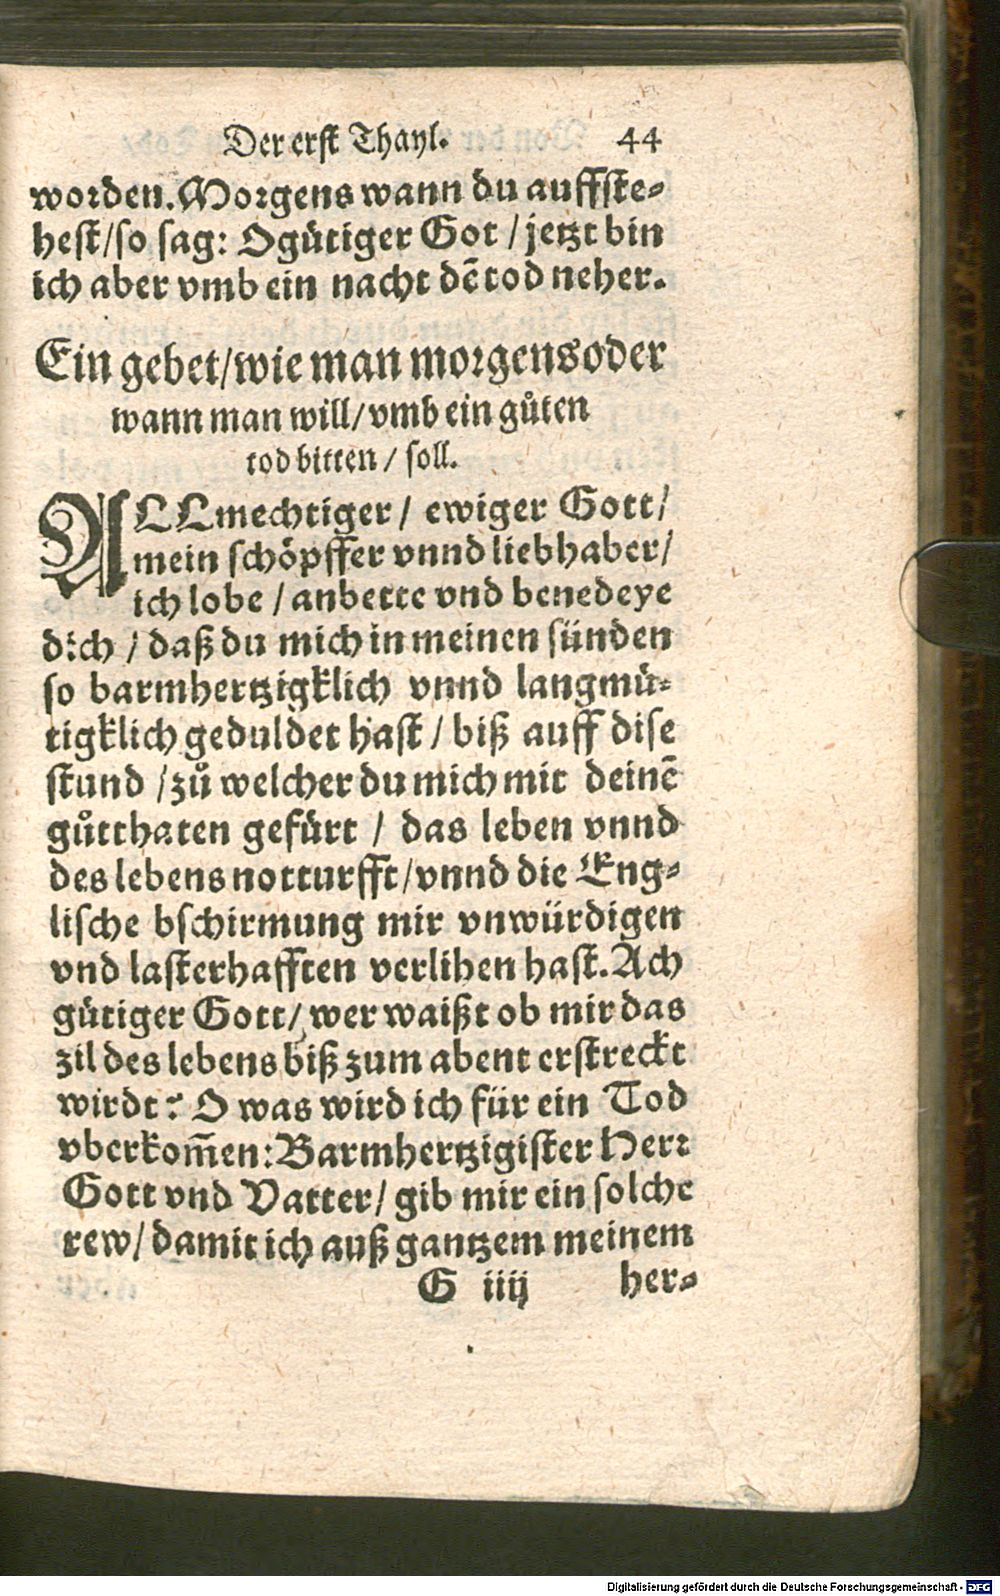 Der erst Thayl. 44
worden. Morgens wann du auffste⸗
hest/so sag: O gütiger Got / jetzt bin
ich aber vmb ein nacht dē tod neher.
Ein gebet/wie man morgens oder
wann man will/vmb ein gůten
tod bitten / soll.
ALLmechtiger / ewiger Gott/
mein schöpffer vnnd liebhaber/
ich lobe / anbette vnd benedeye
dich / daß du mich in meinen sünden
so barmhertzigklich vnnd langmü⸗
tigklich geduldet hast / biß auff dise
stund /zů welcher du mich mit deinē
gůtthaten gefürt / das leben vnnd
des lebens notturfft/vnnd die Eng⸗
lische bschirmung mir vnwürdigen
vnd lasterhafften verlihen hast. Ach
gütiger Gott/ wer waißt ob mir das
zil des lebens biß zum abent erstreckt
wirdt? O was wird ich für ein Tod
vberkom̄en: Barmhertzigister Herr
Gott vnd Vatter/ gib mir ein solche
rew/ damit ich auß gantzem meinem
G iiij her⸗
Digitalisierung gefördert durch die Deutsche Forschungsgemeinschaft - DFG